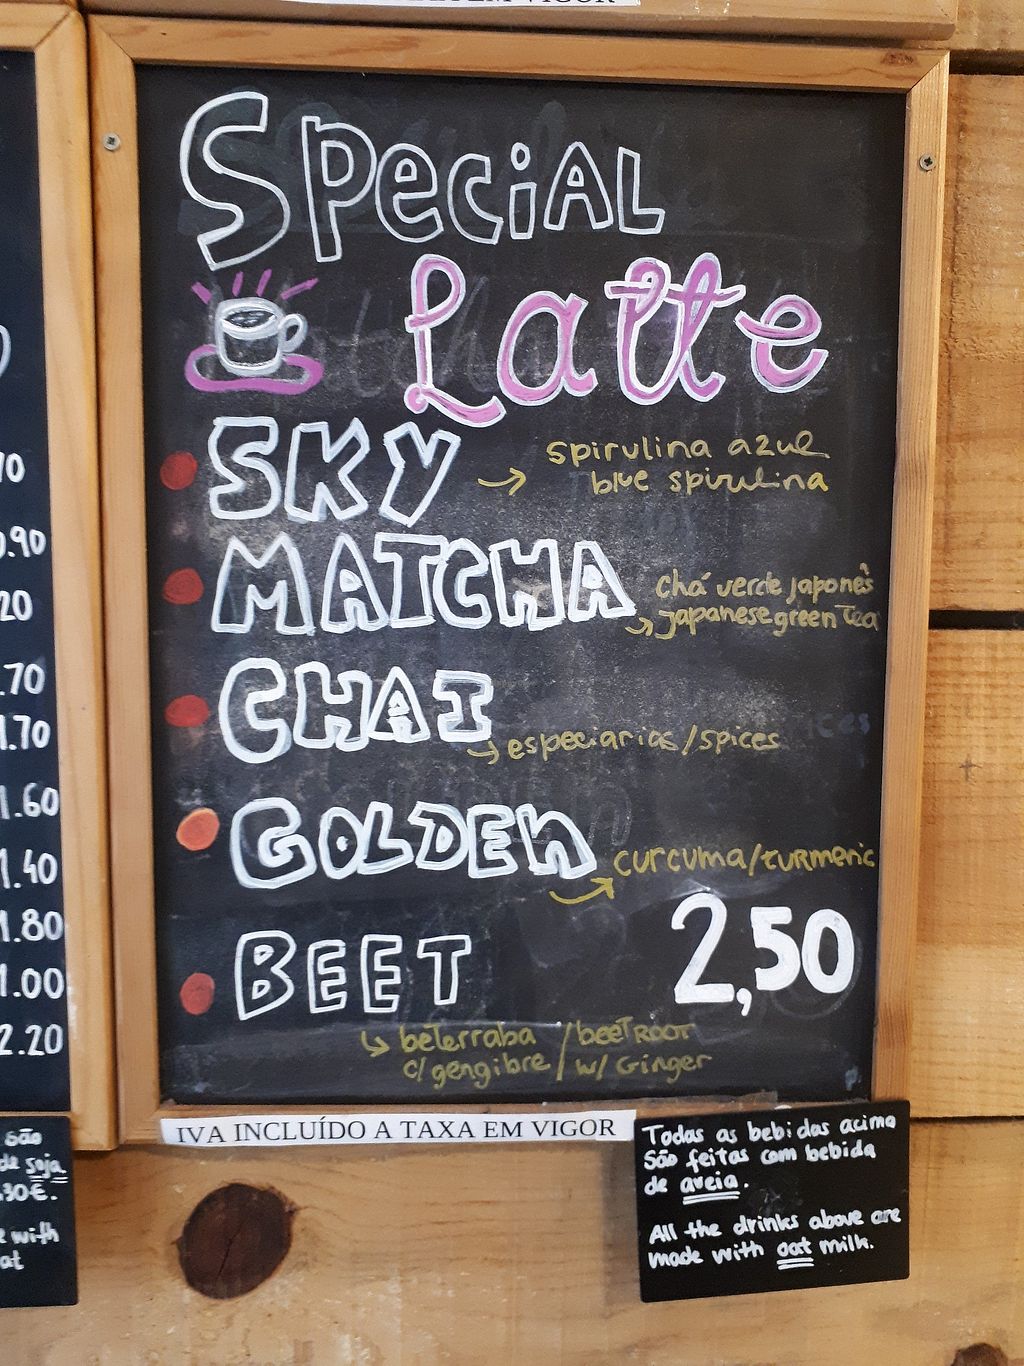 EM VIGOR
SPeciAL
Latte
SKY
spirulina azul
blue spirulina
MATCHA
chá verde japonês
japanese green Tea
CHAI
especiarias/spices
GOLDEn
curcuma/turmeric
2,50
BEET
beterraba / beetROOT
c/ gengibre / w/ Ginger
IVA INCLUÍDO A TAXA EM VIGOR
Todas as bebidas acima
São feitas com bebida
de aveia.
All the drinks above are
made with oat milk.
70
0.90
20
.70
1.70
1.60
1.40
1.80
1.00
2.20
são
de soja
.30€.
with
at